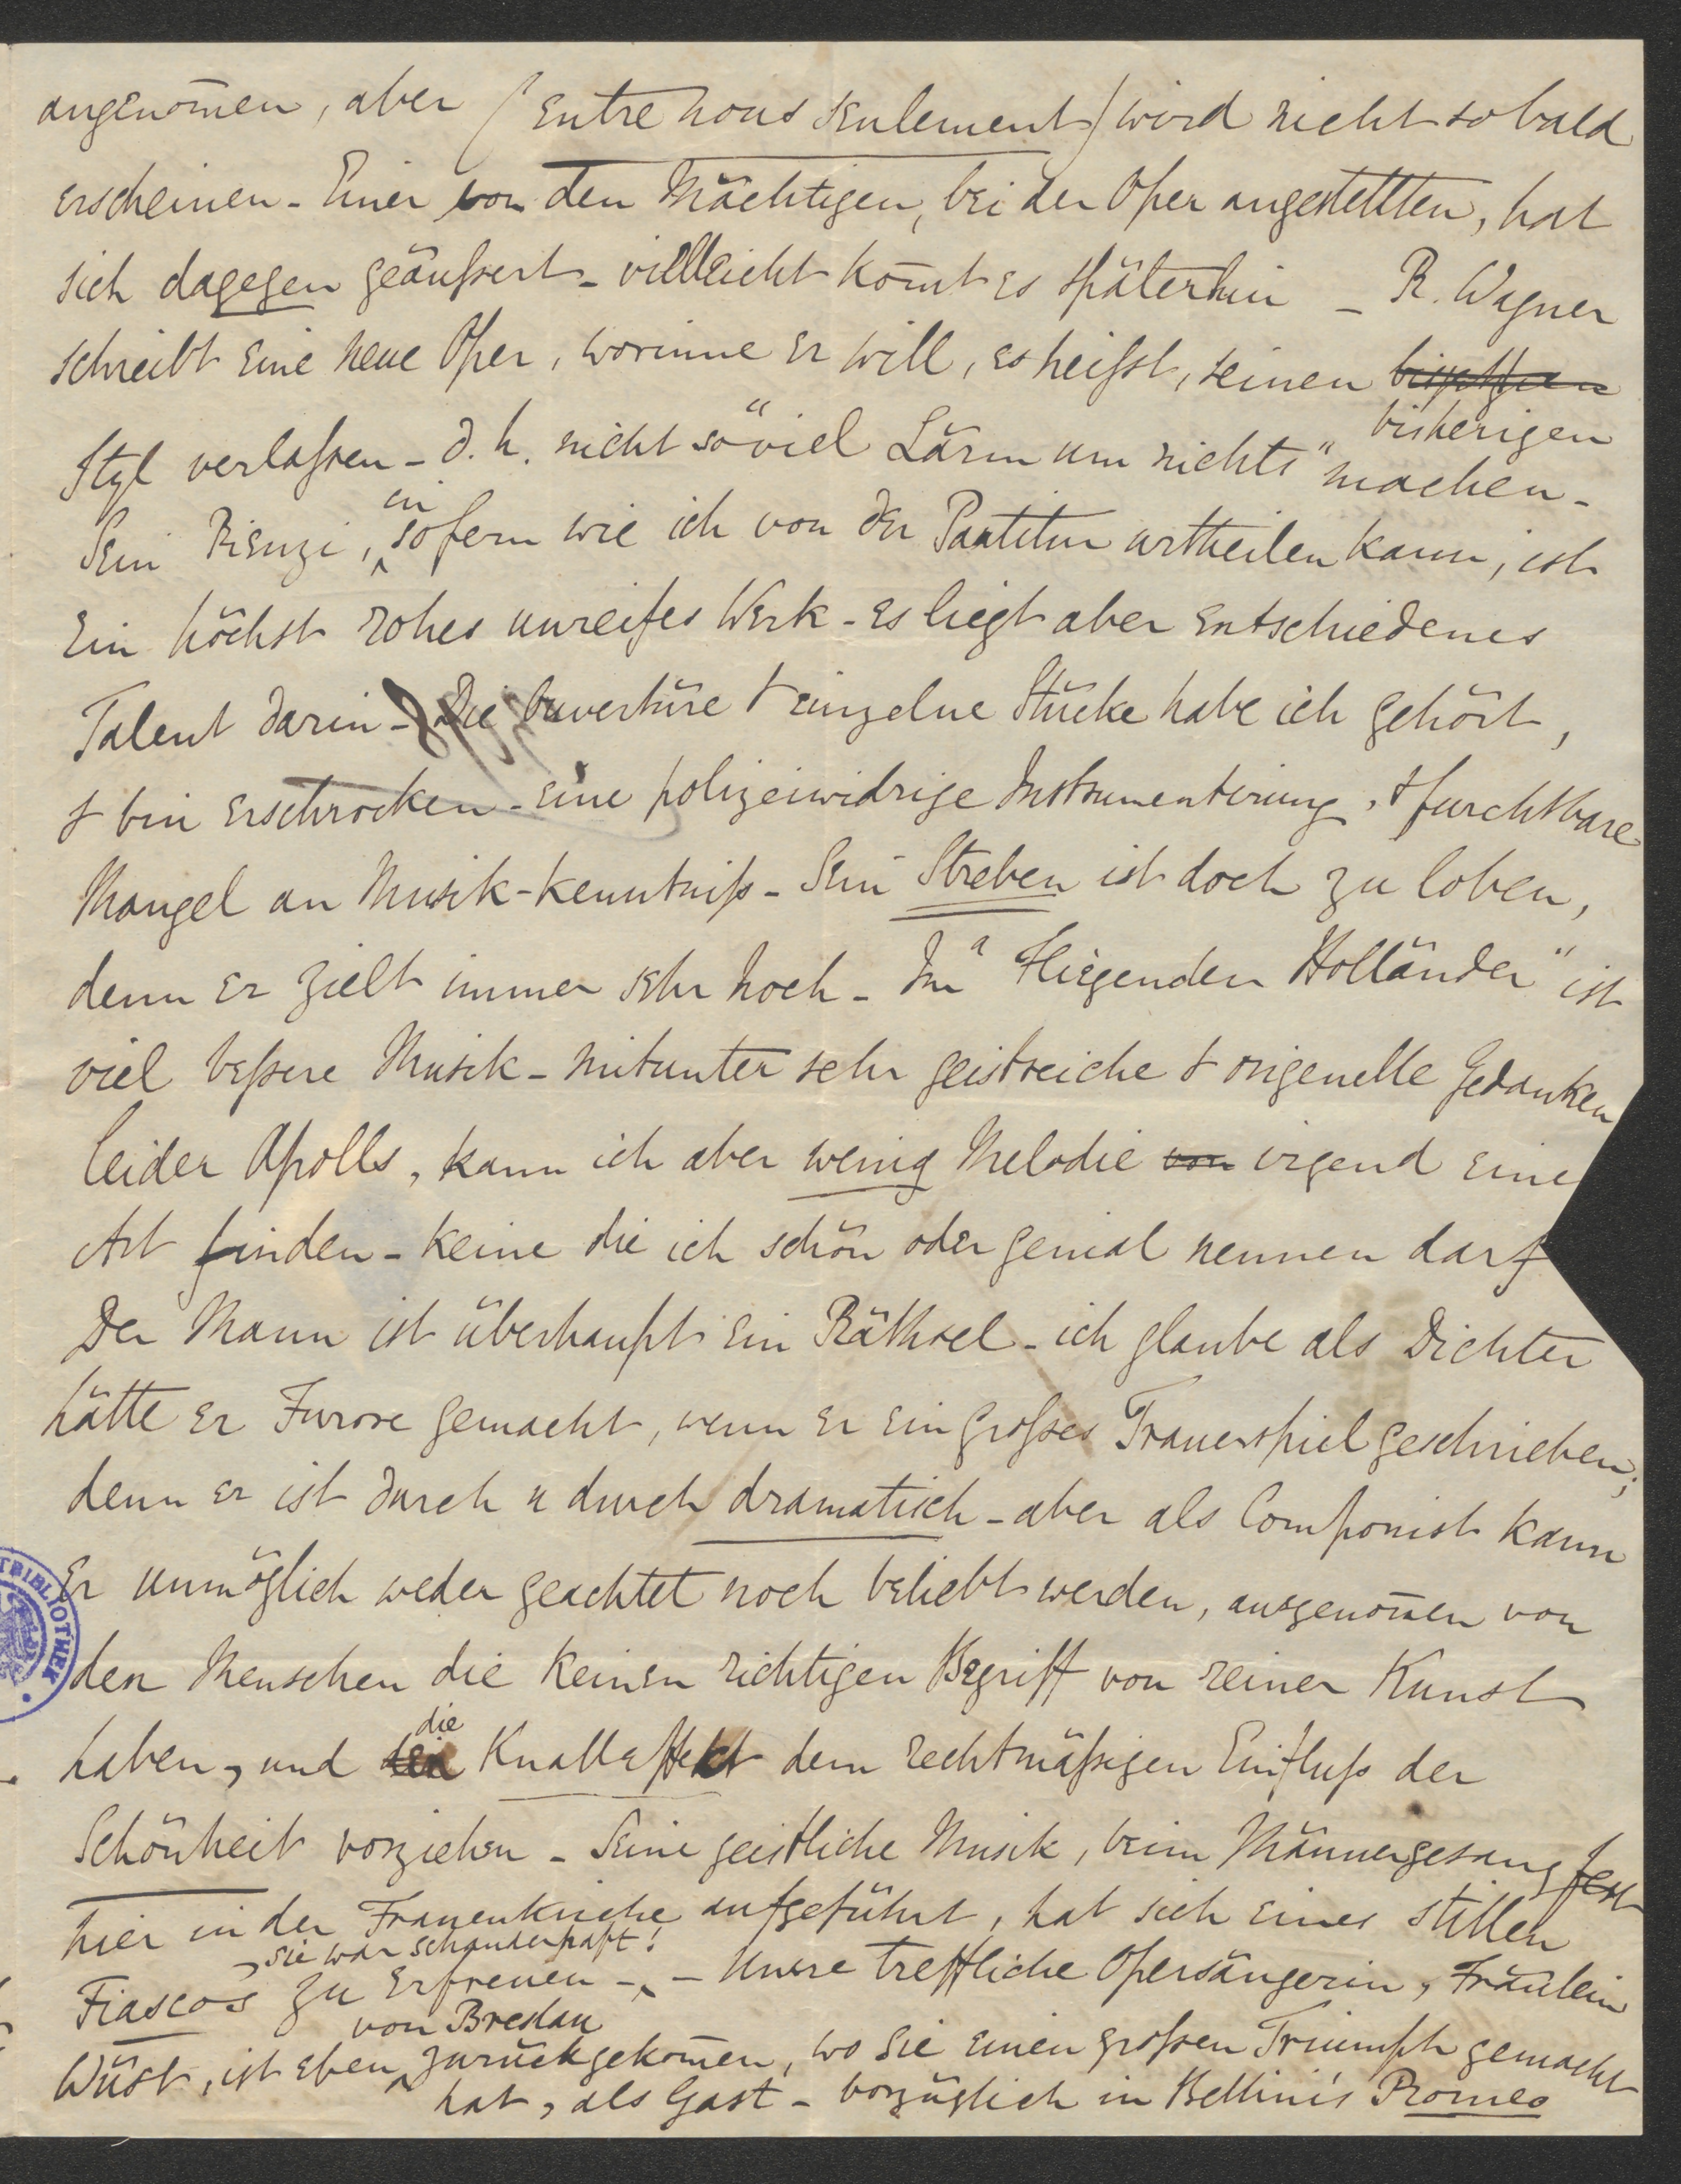 angenom̄en, aber (entre nous seulement) wird nicht so bald
erscheinen - Einer von den Mächtigen, bei der Oper angestellten, hat
sich dagegen geäußert - villeicht kom̄t es späterhin - R. Wagner
schreibt eine neue Oper, worinne er will, es heißt, seinen
bisherigen
Styl verlaßen - d. h. nicht so "viel Lärm um nichts" machen -
in
Sein Rienzi, sofern wie ich von der Partitur urtheilen kann, ist
ein höchst rohes unreifes Werk - es liegt aber entschiedenes
Talent darin - Die Ouvertüre & einzelne Stücke habe ich gehört,
& bin erschrocken - eine polizeiwidrige Instrumentirung, & furchtbare
Mangel an Musik-kenntniß - Sein Streben ist doch zu loben,
denn er zielt immer sehr hoch - Im "Fliegenden Holländer" ist
viel beßere Musik - mitunter sehr geistreiche & origenelle Gedanken
leider Apolls, kann ich aber wenig Melodie von irgend eine
Art finden - keine die ich schön oder genial nennen darf
Der Mann ist überhaupt ein Räthsel - ich glaube als Dichter
hätte er Furore gemacht, wenn er ein großes Trauerspiel geschrieben;
denn er ist durch u durch dramatisch - aber als Componist kann
er unmöglich weder geachtet noch beliebt werden, ausgenom̄en von
den Menschen die keinen richtigen Begriff von reiner Kunst
die
haben, und den Knalleffekt dem rechtmäßigen Einfluß der
Schönheit vorziehen - Seine geistliche Musik, beim Männergesang fest
hier in der Frauenkirche aufgeführt, hat sich eines stillen
, sie war schauderhaft!
Fiasco's zu erfreuen - - Unsre treffliche Opersängerin, Fräulein
von Breslau
Wüst, ist eben zurückgekom̄en, wo sie einen großen Triumph gemacht
hat, als Gast - vorzüglich in Bellini's Romeo